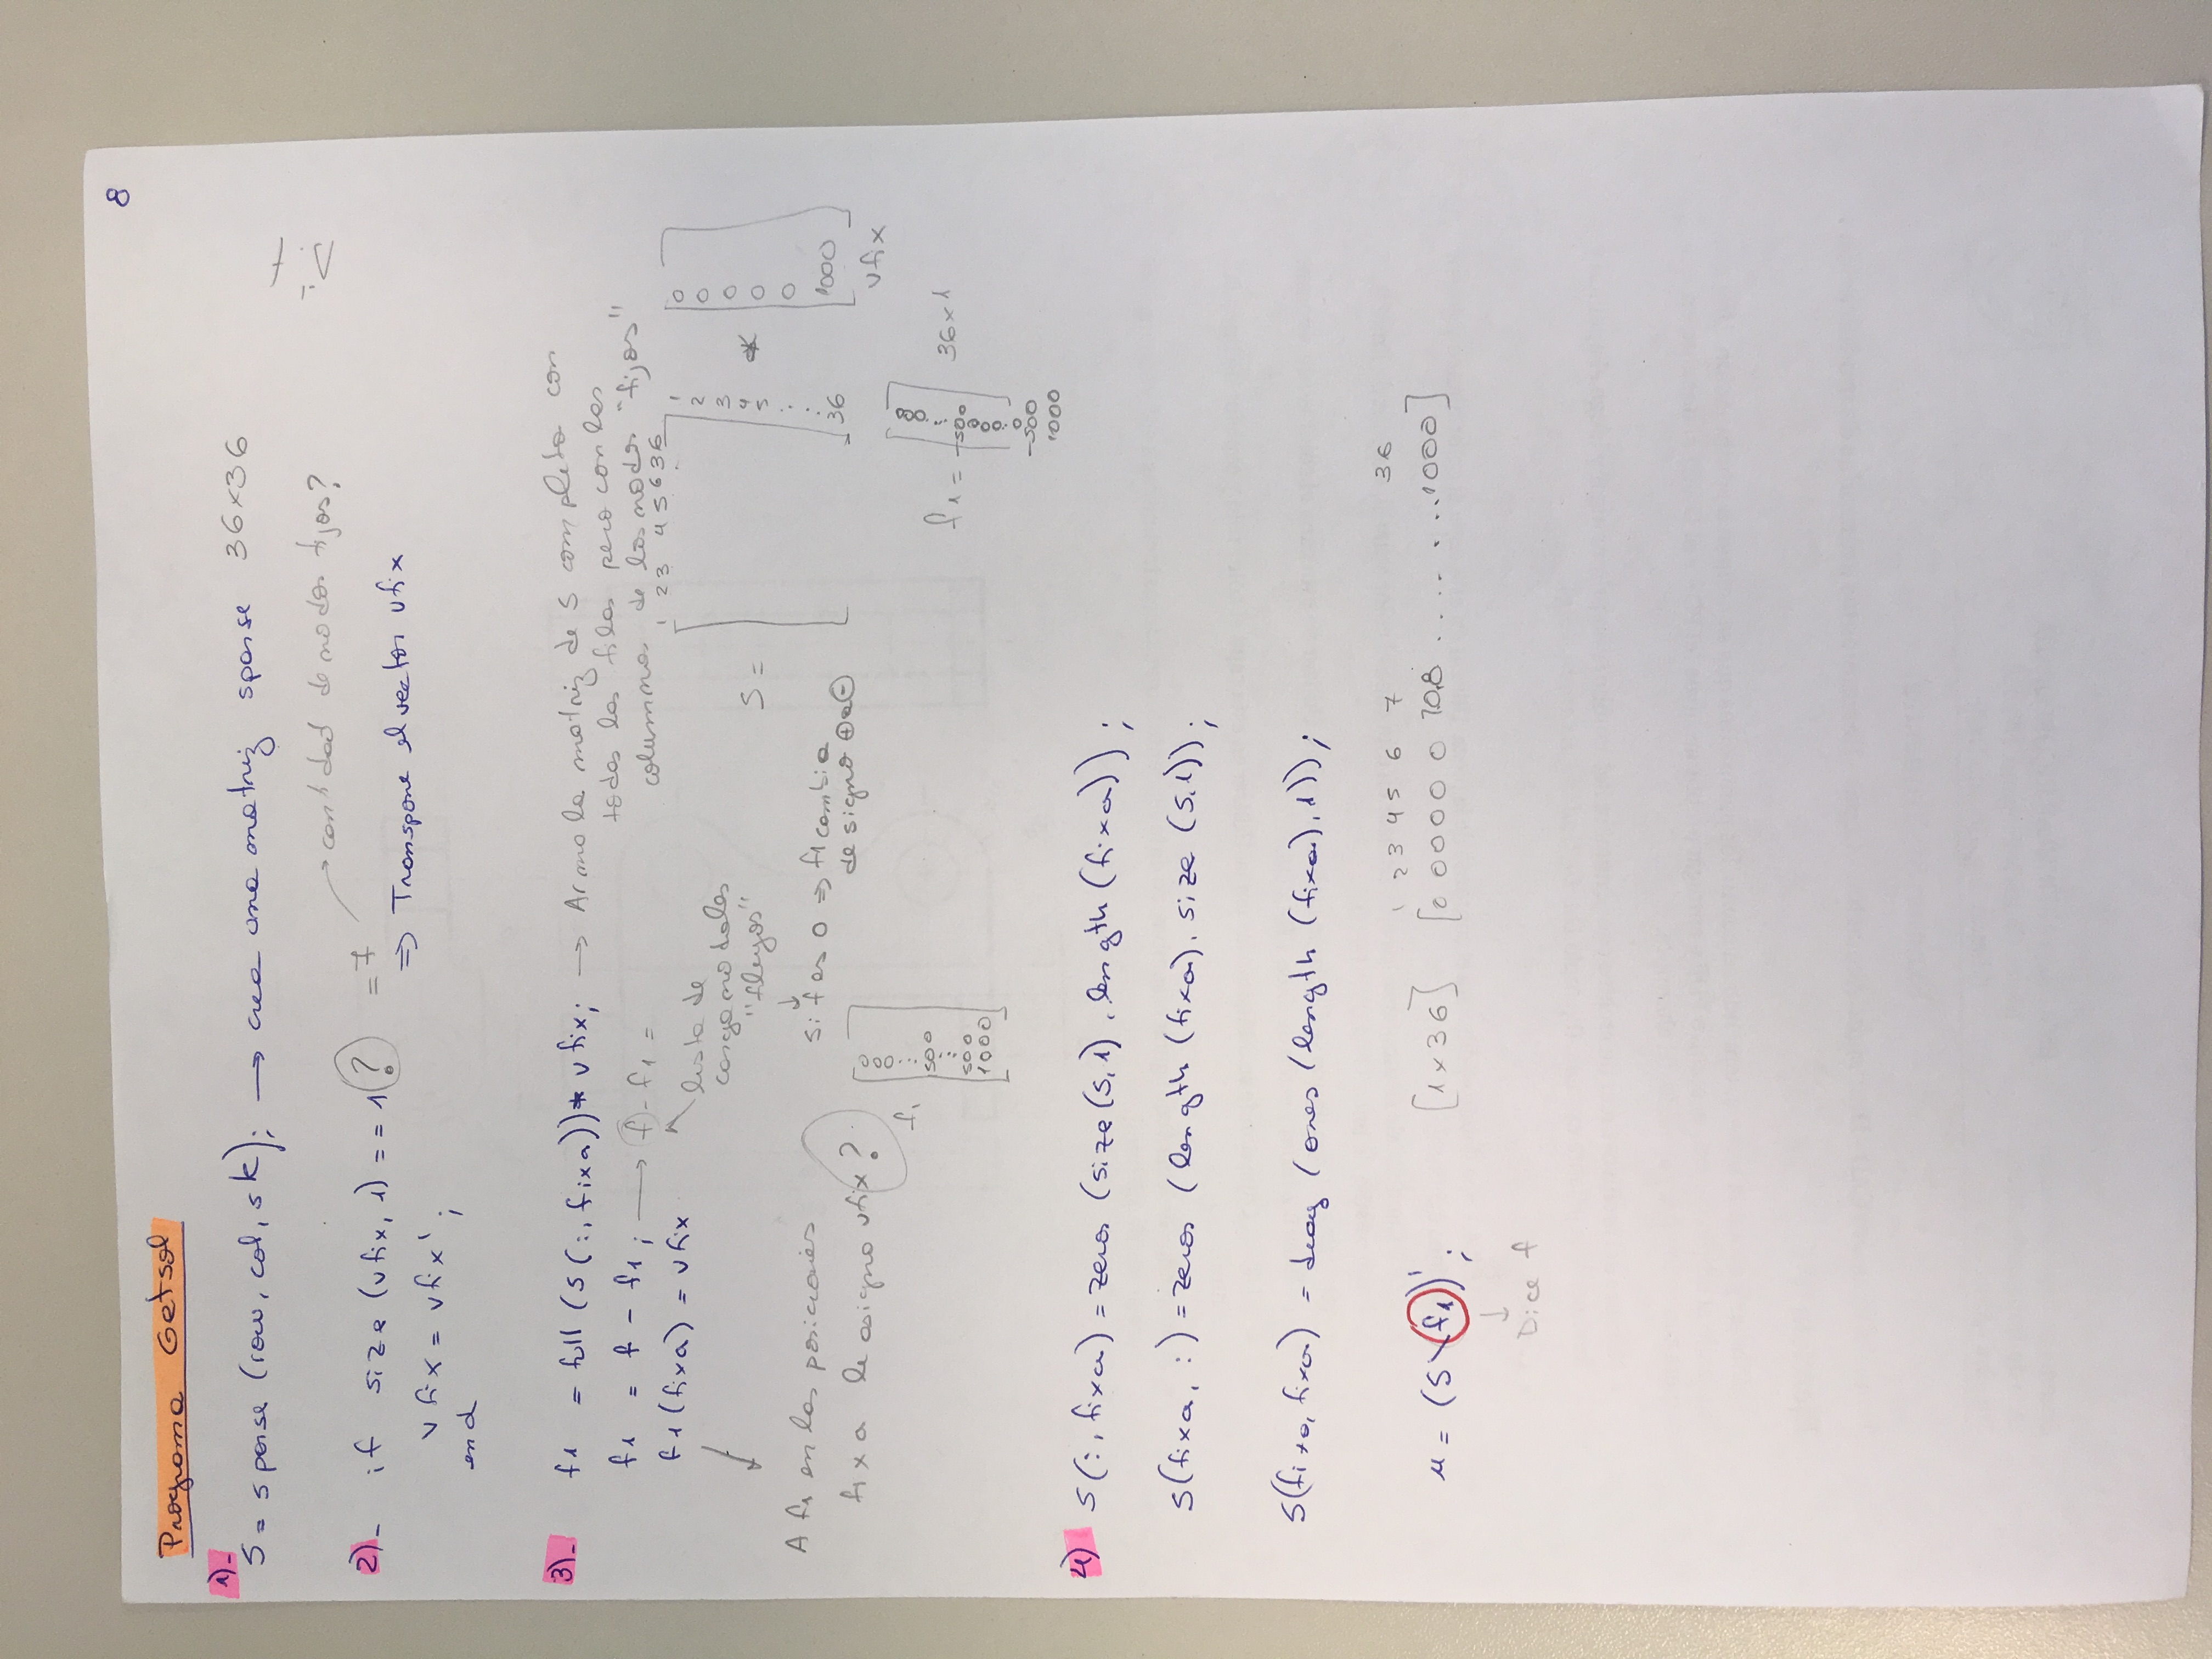 8
Programa Getsol
1)-
S = sparse (row, col, sk); → crea una matriz sparse 36x36
→ cantidad de nodos fijos?
2)- if size (vfix, 1) == 1 ? = 7
⇒ Transpone el vector vfix
vfix = vfix';
end
3)- f1 = full (S(:, fixa)) * vfix; → Armo la matriz de S completa con
todas las filas pero con las
columnas de los nodos "fijos"
f1 = f - f1; → f - f1 =
f1(fixa) = vfix
lista de
carga nodales
"flujos"
si f es 0 ⇒ f1 cambia
de signo ⊕ a ⊖
A f1 en las posiciones
fixa le asigno vfix?
1 2 3 4 5 6 36
S =
1
2
3
4
5
.
.
.
36
*
0
0
0
0
0
1000
vfix
f1
0
00
...000
500
...
500
1000
f1 =
000
...
-500
0000..0
-500
1000
36x1
4) S(:, fixa) = zeros (size(S,1), length(fixa));
S(fixa, :) = zeros (length (fixa), size (S,1));
S(fixa, fixa) = diag (ones (length (fixa), 1));
1 2 3 4 5 6 7 36
u = (S\f1)'; [1x36] [0 0 0 0 0 0 70,8 .... . ...1000]
Dice f